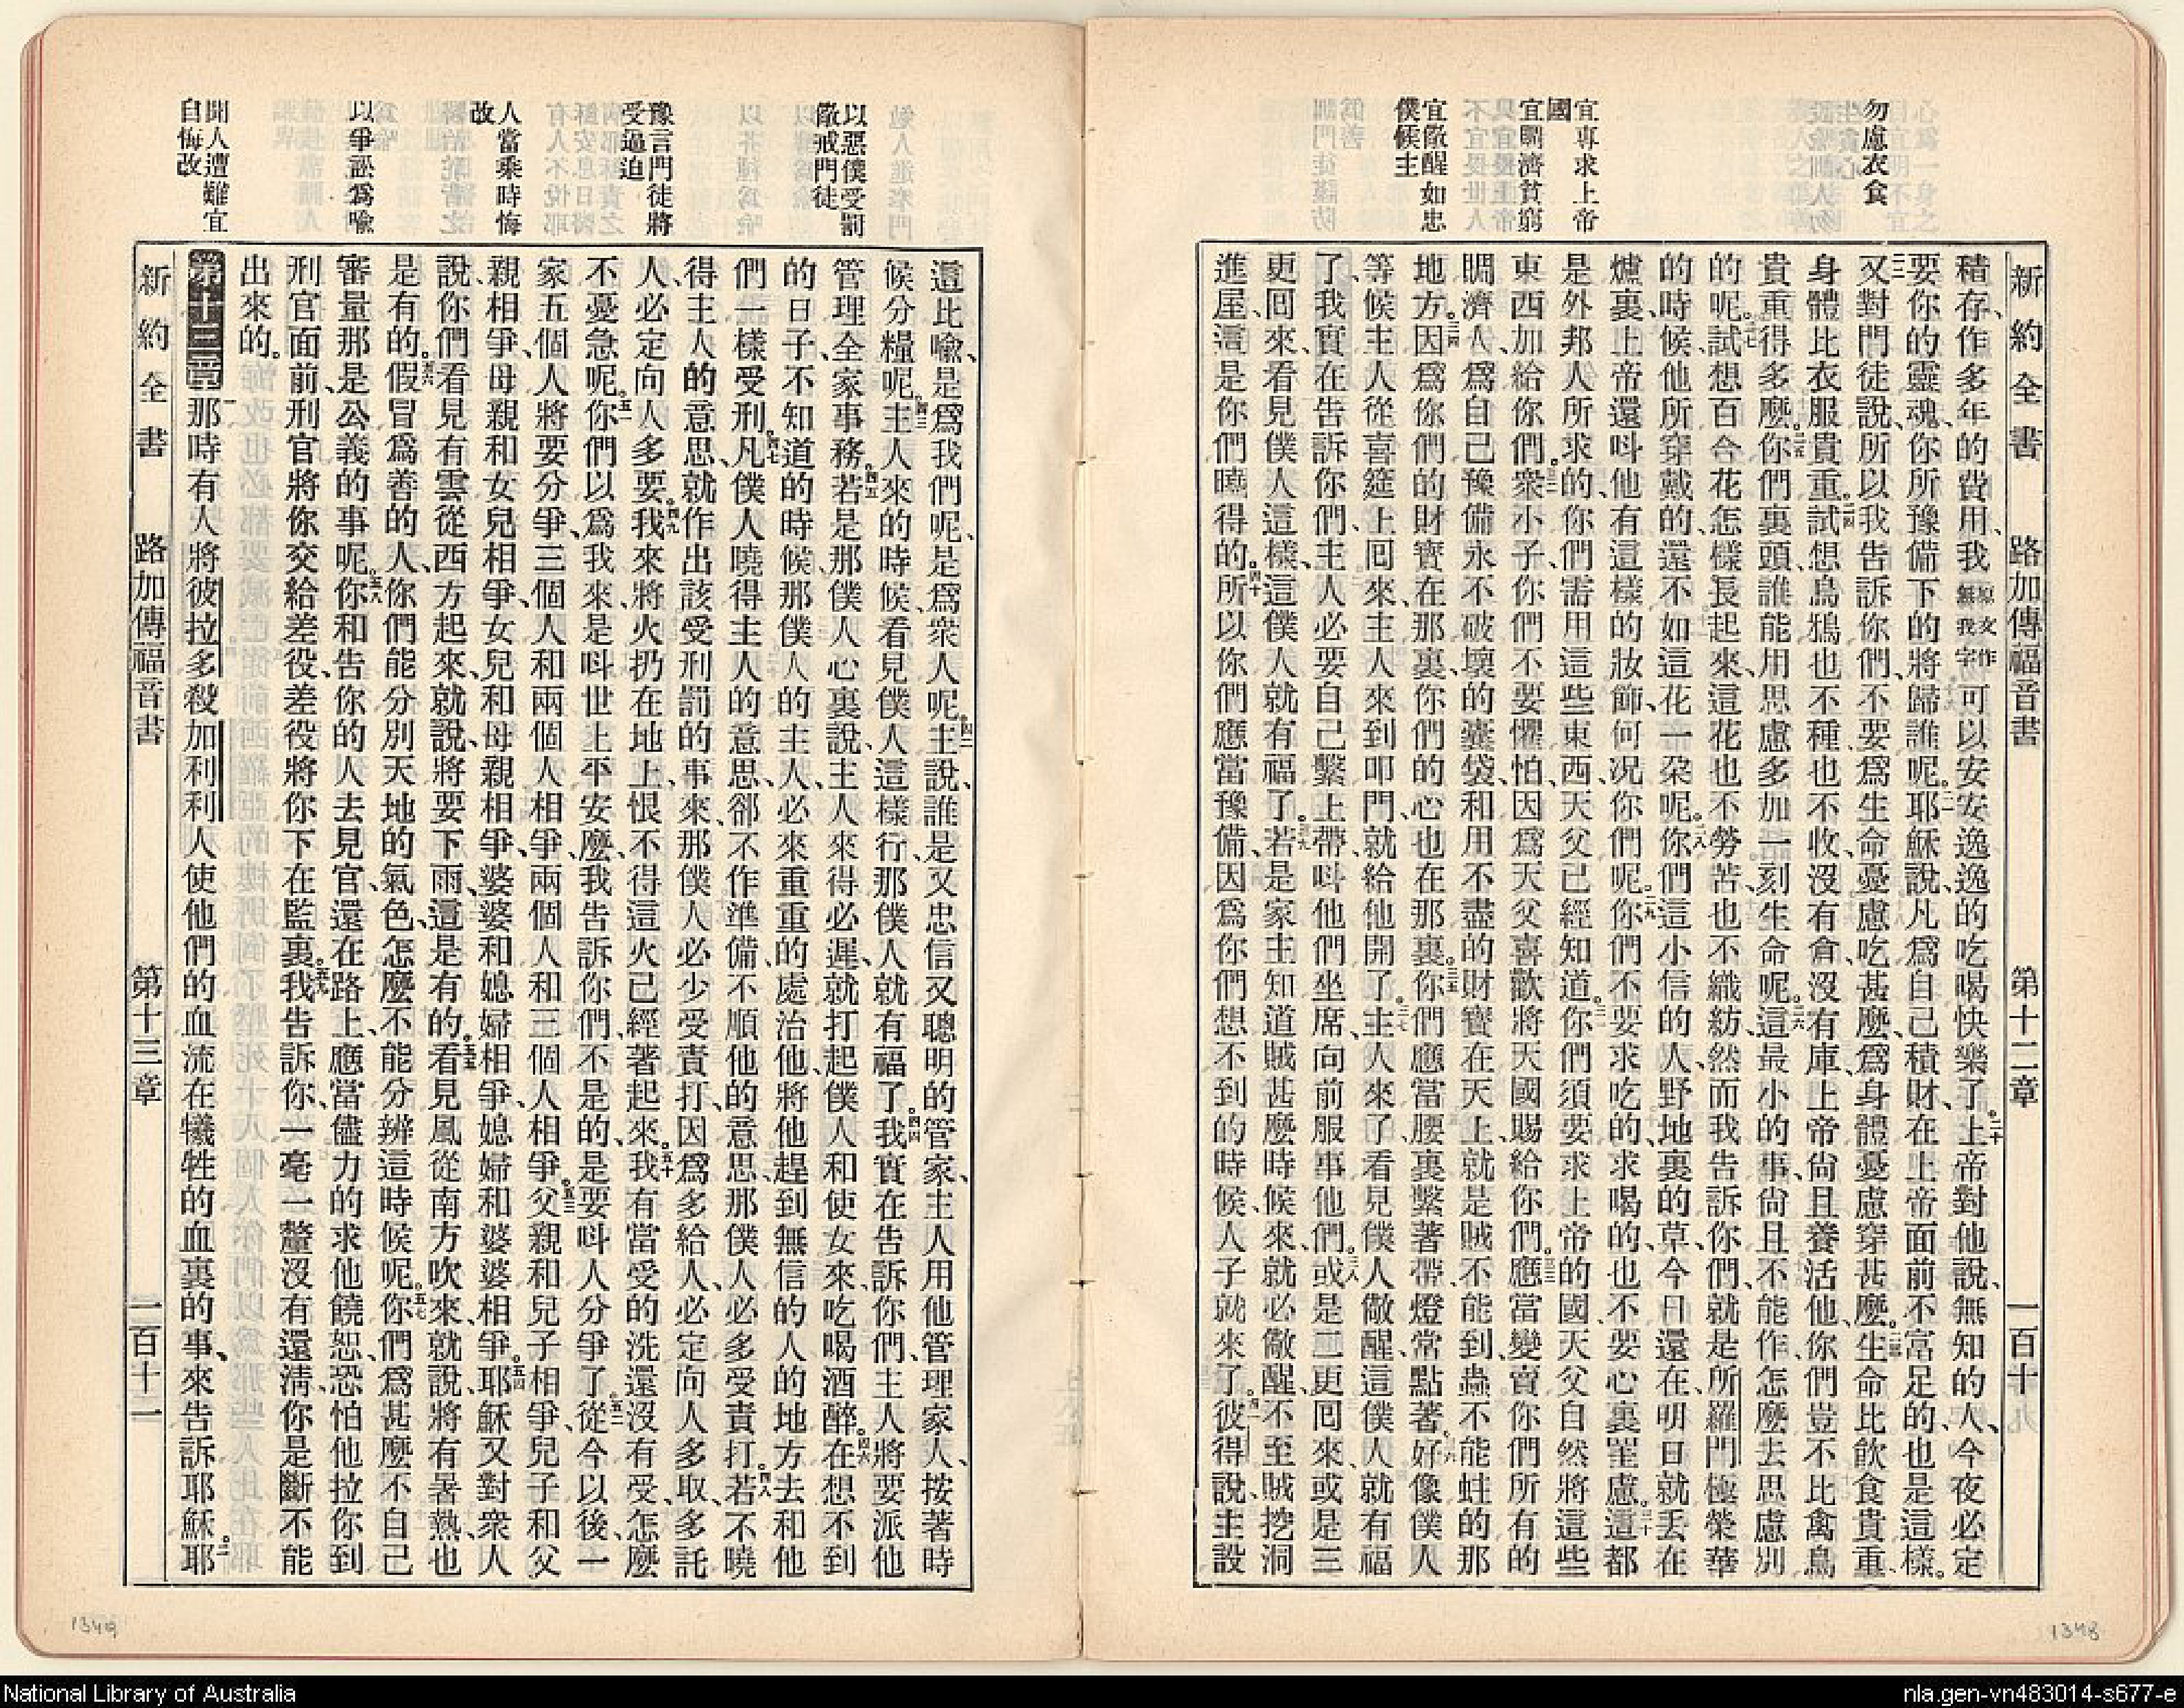 新約全書 路加傳福音書 第十二章 一百十
勿慮衣食
宜專求上帝
國
宜賙濟貧窮
宜儆醒如忠
僕候主
積存作多年的費用、我原文作無我字可以安安逸逸的吃喝快樂了。二十上帝對他說、無知的人、今夜必定
要你的靈魂、你所豫備下的將歸誰呢。二一耶穌說、凡爲自己積財、在上帝面前不富足的、也是這樣。
二二又對門徒說、所以我告訴你們、不要爲生命憂慮吃甚麼、爲身體憂慮穿甚麼。二三生命比飲食貴重、
身體比衣服貴重。二四試想烏鴉也不種也不收、沒有倉、沒有庫、上帝尙且養活他、你們豈不比禽鳥
貴重得多麼。二五你們裏頭誰能用思慮多加一刻生命呢。二六這最小的事、尙且不能作、怎麼去思慮別
的呢。二七試想百合花、怎樣長起來、這花也不勞苦、也不織紡、然而我告訴你們、就是所羅門極榮華
的時候、他所穿戴的、還不如這花一朶呢。二八你們這小信的人、野地裏的草、今日還在、明日就丟在
爐裏、上帝還呌他有這樣的妝飾、何况你們呢。二九你們不要求吃的、求喝的、也不要心裏罣慮。三十這都
是外邦人所求的、你們需用這些東西、天父已經知道。三一你們須要求上帝的國、天父自然將這些
東西加給你們。三二衆小子、你們不要懼怕、因爲天父喜歡將天國賜給你們。三三應當變賣你們所有的
賙濟人、爲自己豫備永不破壞的囊袋、和用不盡的財寶在天上、就是賊不能到、蟲不能蛀的那
地方。三四因爲你們的財寶在那裏、你們的心也在那裏。三五你們應當腰裏繫著帶、燈常點著。三六好像僕人
等候主人從喜筵上回來、主人來到叩門、就給他開了。三七主人來了、看見僕人儆醒、這僕人就有福
了、我實在告訴你們、主人必要自己繫上帶、呌他們坐席、向前服事他們。三八或是二更回來、或是三
更回來、看見僕人這樣、這僕人就有福了。三九若是家主知道賊甚麼時候來、就必儆醒、不至賊挖洞
進屋、這是你們曉得的。四十所以你們應當豫備、因爲你們想不到的時候、人子就來了。四一彼得說、主設
以惡僕受罰
儆戒門徒
豫言門徒將
受逼迫
人當乘時悔
改
以爭訟爲喩
聞人遭難宜
自悔改
這比喻、是爲我們呢、是爲衆人呢。四二主說、誰是又忠信又聰明的管家、主人用他管理家人、按著時
候分糧呢。四三主人來的時候、看見僕人這樣行、那僕人就有福了。四四我實在告訴你們、主人將要派他
管理全家事務。四五若是那僕人心裏說、主人來得必遲、就打起僕人和使女來、吃喝酒醉。四六在想不到
的日子、不知道的時候、那僕人的主人、必來重重的處治他、將他趕到無信的人的地方去、和他
們一樣受刑。四七凡僕人曉得主人的意思、卻不作準備、不順他的意思、那僕人必多受責打。四八若不曉
得主人的意思、就作出該受刑罰的事來、那僕人必少受責打、因爲多給人、必定向人多取、多託
人、必定向人多要。四九我來將火扔在地上、恨不得這火已經著起來。五十我有當受的洗還沒有受、怎麼
不憂急呢。五一你們以爲我來是呌世上平安麼、我告訴你們、不是的、是要呌人分爭了。五二從今以後、一
家五個人將要分爭、三個人和兩個人相爭、兩個人和三個人相爭。五三父親和兒子相爭、兒子和父
親相爭、母親和女兒相爭、女兒和母親相爭、婆婆和媳婦相爭、媳婦和婆婆相爭。五四耶穌又對衆人
說、你們看見有雲從西方起來、就說、將要下雨、這是有的。五五看見風從南方吹來、就說、將有暑熱、也
是有的。五六假冒爲善的人、你們能分別天地的氣色、怎麼不能分辨這時候呢。五七你們爲甚麼不自己
審量那是公義的事呢。五八你和告你的人去見官、還在路上、應當儘力的求他饒恕、恐怕他拉你到
刑官面前、刑官將你交給差役、差役將你下在監裏。五九我告訴你、一毫一釐沒有還淸、你是斷不能
出來的。
第十三章一那時有人將彼拉多殺加利利人使他們的血流在犧牲的血裏的事、來告訴耶穌。二耶
新約全書 路加傳福音書 第十三章 一百十一
1349
1348
National Library of Australia
nla.gen-vn483014-s677-e